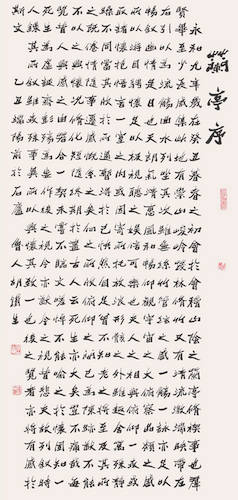 蘭亭序
永和九年歲在癸丑暮春之初會於會稽山陰之蘭亭脩禊事也羣
賢畢至少長咸集此地有崇山峻嶺茂林脩竹又有清流激湍映帶左
右引以為流觴曲水列坐其次雖無絲竹管絃之盛一觴一詠亦足以
暢敘幽情是日也天朗氣清惠風和暢仰觀宇宙之大俯察品類之盛
所以遊目騁懷足以極視聽之娛信可樂也夫人之相與俯仰一世或
取諸懷抱悟言一室之內或因寄所託放浪形骸之外雖趣舍萬殊靜
躁不同當其欣於所遇暫得於己快然自足不知老之將至及其所
之既倦情隨事遷感慨係之矣向之所欣俛仰之間以為陳迹猶不能
不以之興懷況脩短隨化終期於盡古人云死生亦大矣豈不痛哉每
覽昔人興感之由若合一契未嘗不臨文嗟悼不能喻之於懷固知一
死生為虛誕齊彭殤為妄作後之視今亦猶今之視昔悲夫故列敘時
人錄其所述雖世殊事異所以興懷其致一也後之覽者亦將有感於
斯文
丑端陽前於石廬
胡鐵生